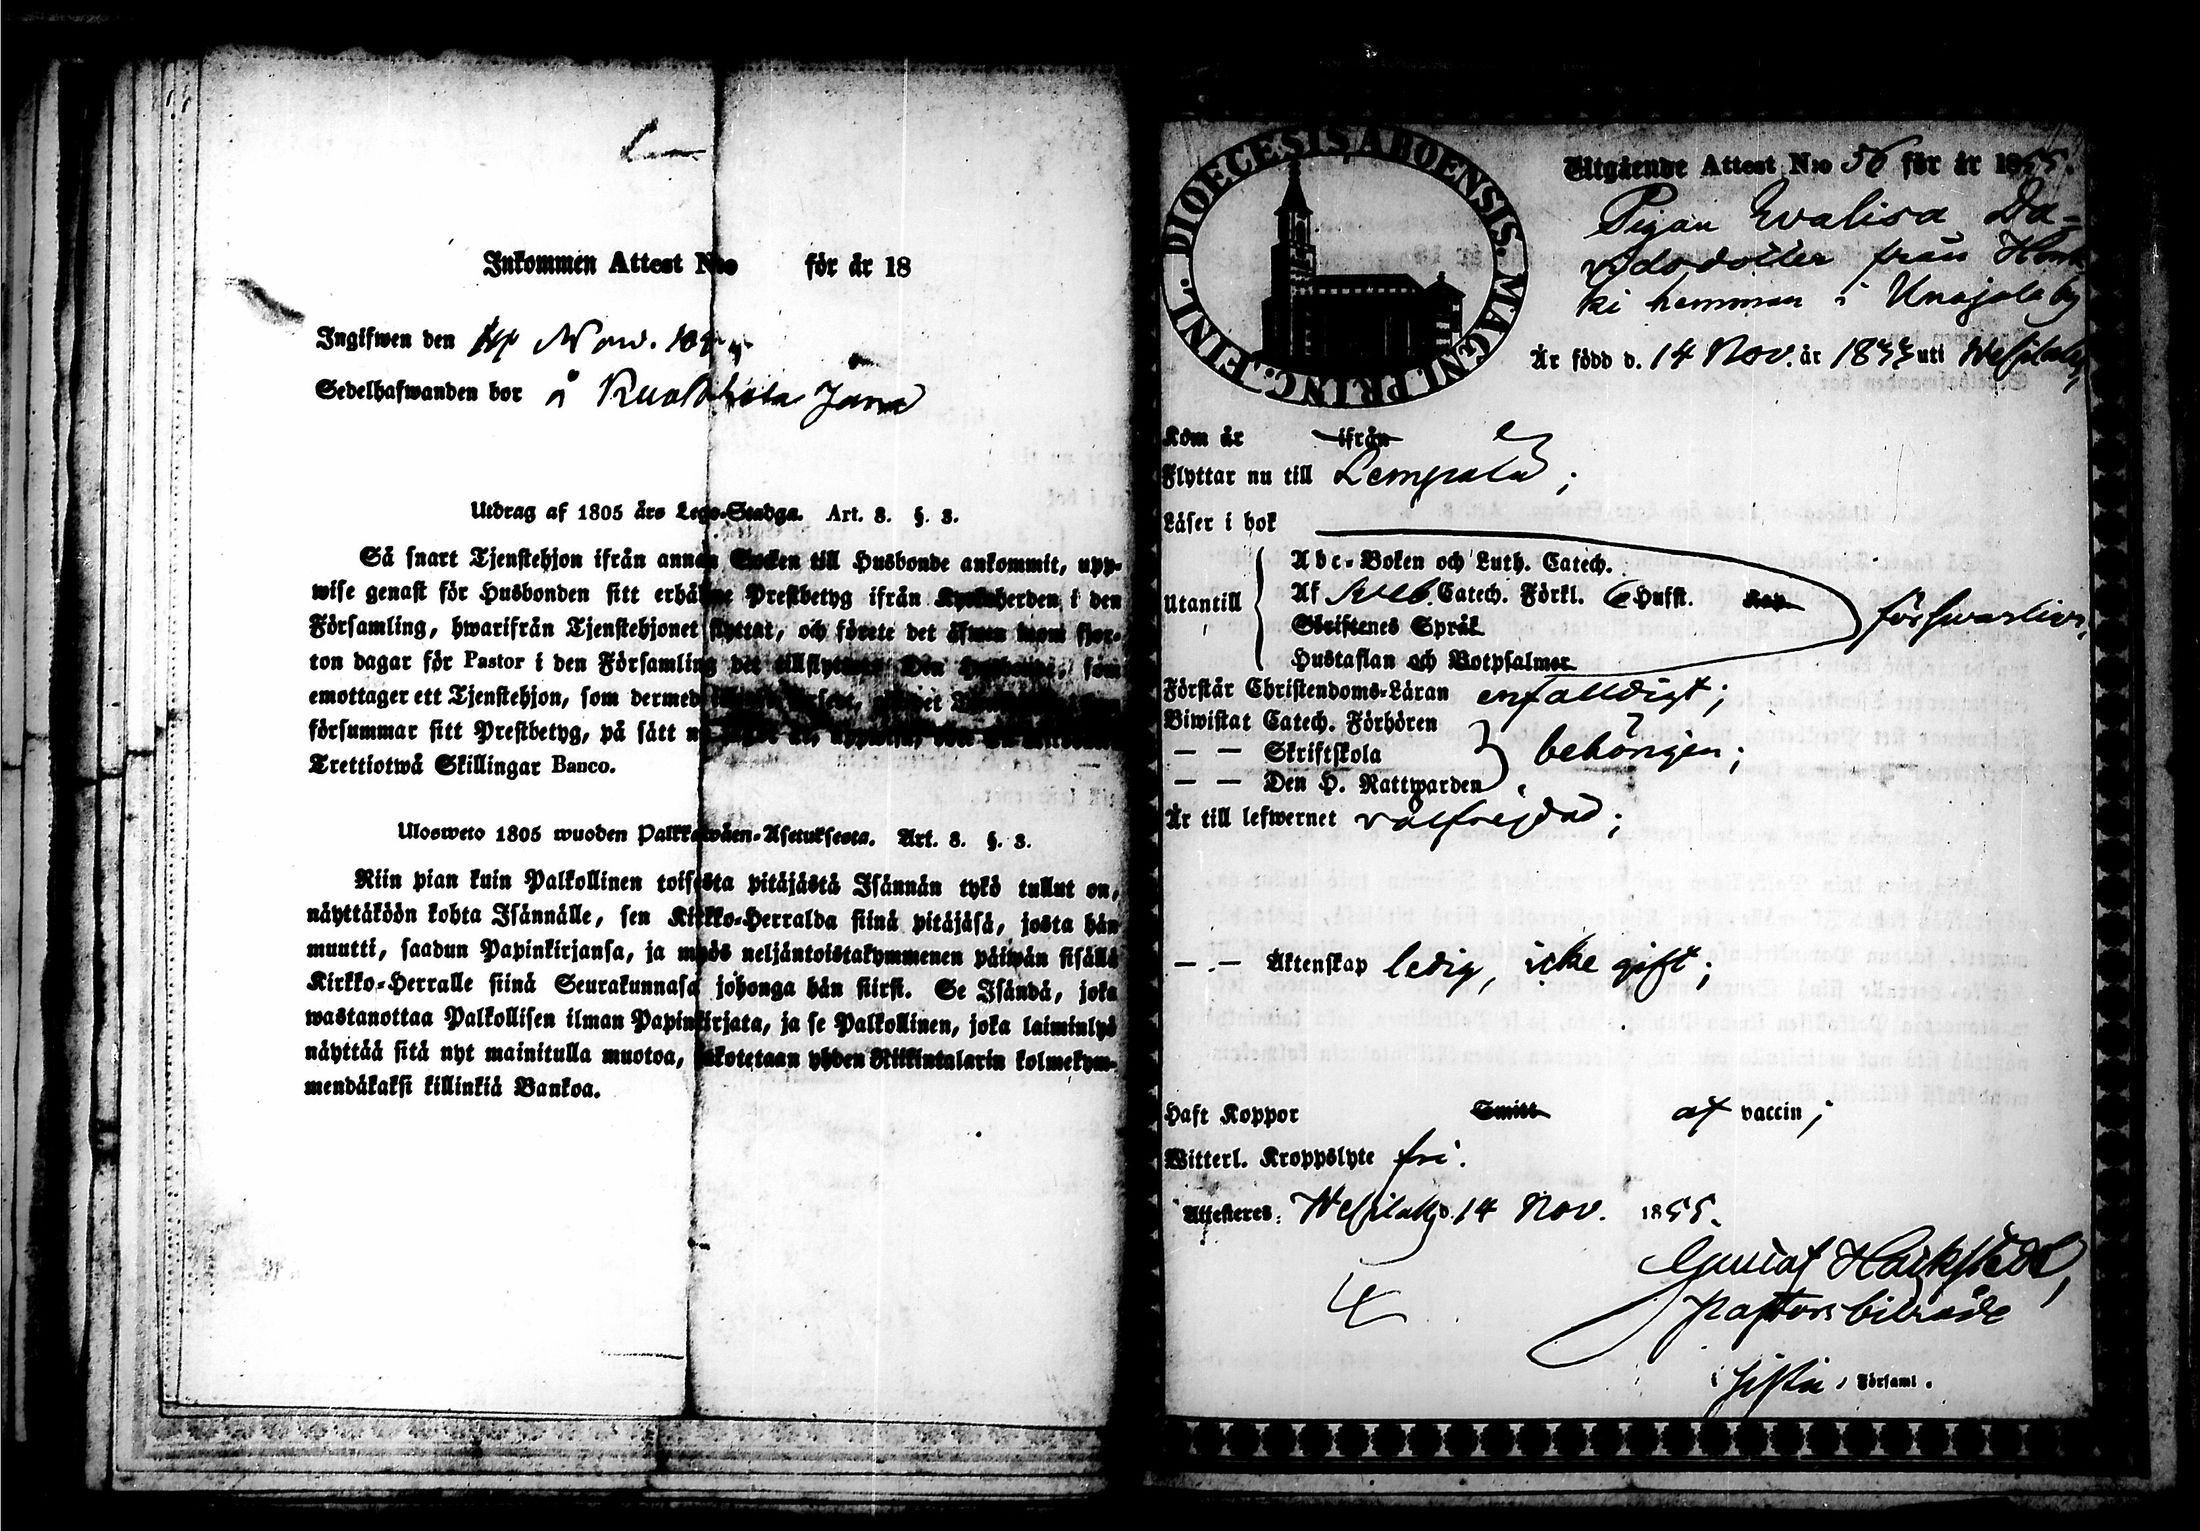 Inkommen Attest N:o för år 18
Ingifwen den Nov. 18
Sedelhafwanden bor å
Utdrag af 1805 års Lego-Stadga. Art. 8. §. 3.
Så snart Tjenstehjon ifrån annan Socken till Husbonde ankommit, upp-
wise genast för Husbonden sitt erhållne Prestbetyg ifrån Kyrkoherden i den
Församling, hwarifrån Tjenstehjonet flyttat, och förete det äfwen inom fjor-
ton dagar för Pastor i den Församling det tillflyttat. Den som
emottager ett Tjenstehjon, som dermed
försummar sitt Prestbetyg, på sätt
Trettiotwå Skillingar Banco.
Ulosweto 1805 wuoden Palkkawäen-Asetuksesta. Art. 8. §. 3.
Niin pian kuin Palkollinen toisesta pitäjästä Isännän tykö tullut on,
näyttäköön kohta Isännälle, sen Kirkko-Herralda siinä pitäjäsä, josta hän
muutti, saadun Papinkirjansa, ja myös neljäntoistakymmenen päiwän sisällä
Kirkko-Herralle siinä Seurakunnasa johonga hän siirsi. Se Isändä, joka
wastanottaa Palkollisen ilman Papinkirjata, ja se Palkollinen, joka laiminlyö
näyttää sitä nyt mainitulla muotoa, sakotetaan yhden Riikintalarin kolmekym-
mendäkaksi killinkiä Bankoa.
DIOECESIS ABOENSIS. MAGNI PRINC. FINL.
Utgående Attest N:o 56 för år 1855.
Pigan Evalisa Da-
vidsdotter från
ki hemman i Unajala by
Är född d. 14 Nov. år 1833 uti Wesilaks,
Kom år ifrån
Flyttar nu till Lempälä;
Läser i bok
Utantill
Abc-Boken och Luth. Catech.
Af Sveb. Catech. Förkl. Husst.
Skriftenes Språk
Hustaflan och Botpsalmer
försvarligt,
Förstår Christendoms-Läran enfaldigt;
Biwistat Catech. Förhören
— — Skriftskola
— — Den H. Nattwarden
behörigen;
Är till lefwernet välfrejdad;
— — Äktenskap ledig, icke gift;
Haft Koppor Smitt af vaccin;
Witterl. Kroppslyte fri.
Attesteres: Wesilaks d. 14 Nov. 1855.
Gustaf
Pastors biträde
i sista Församl.